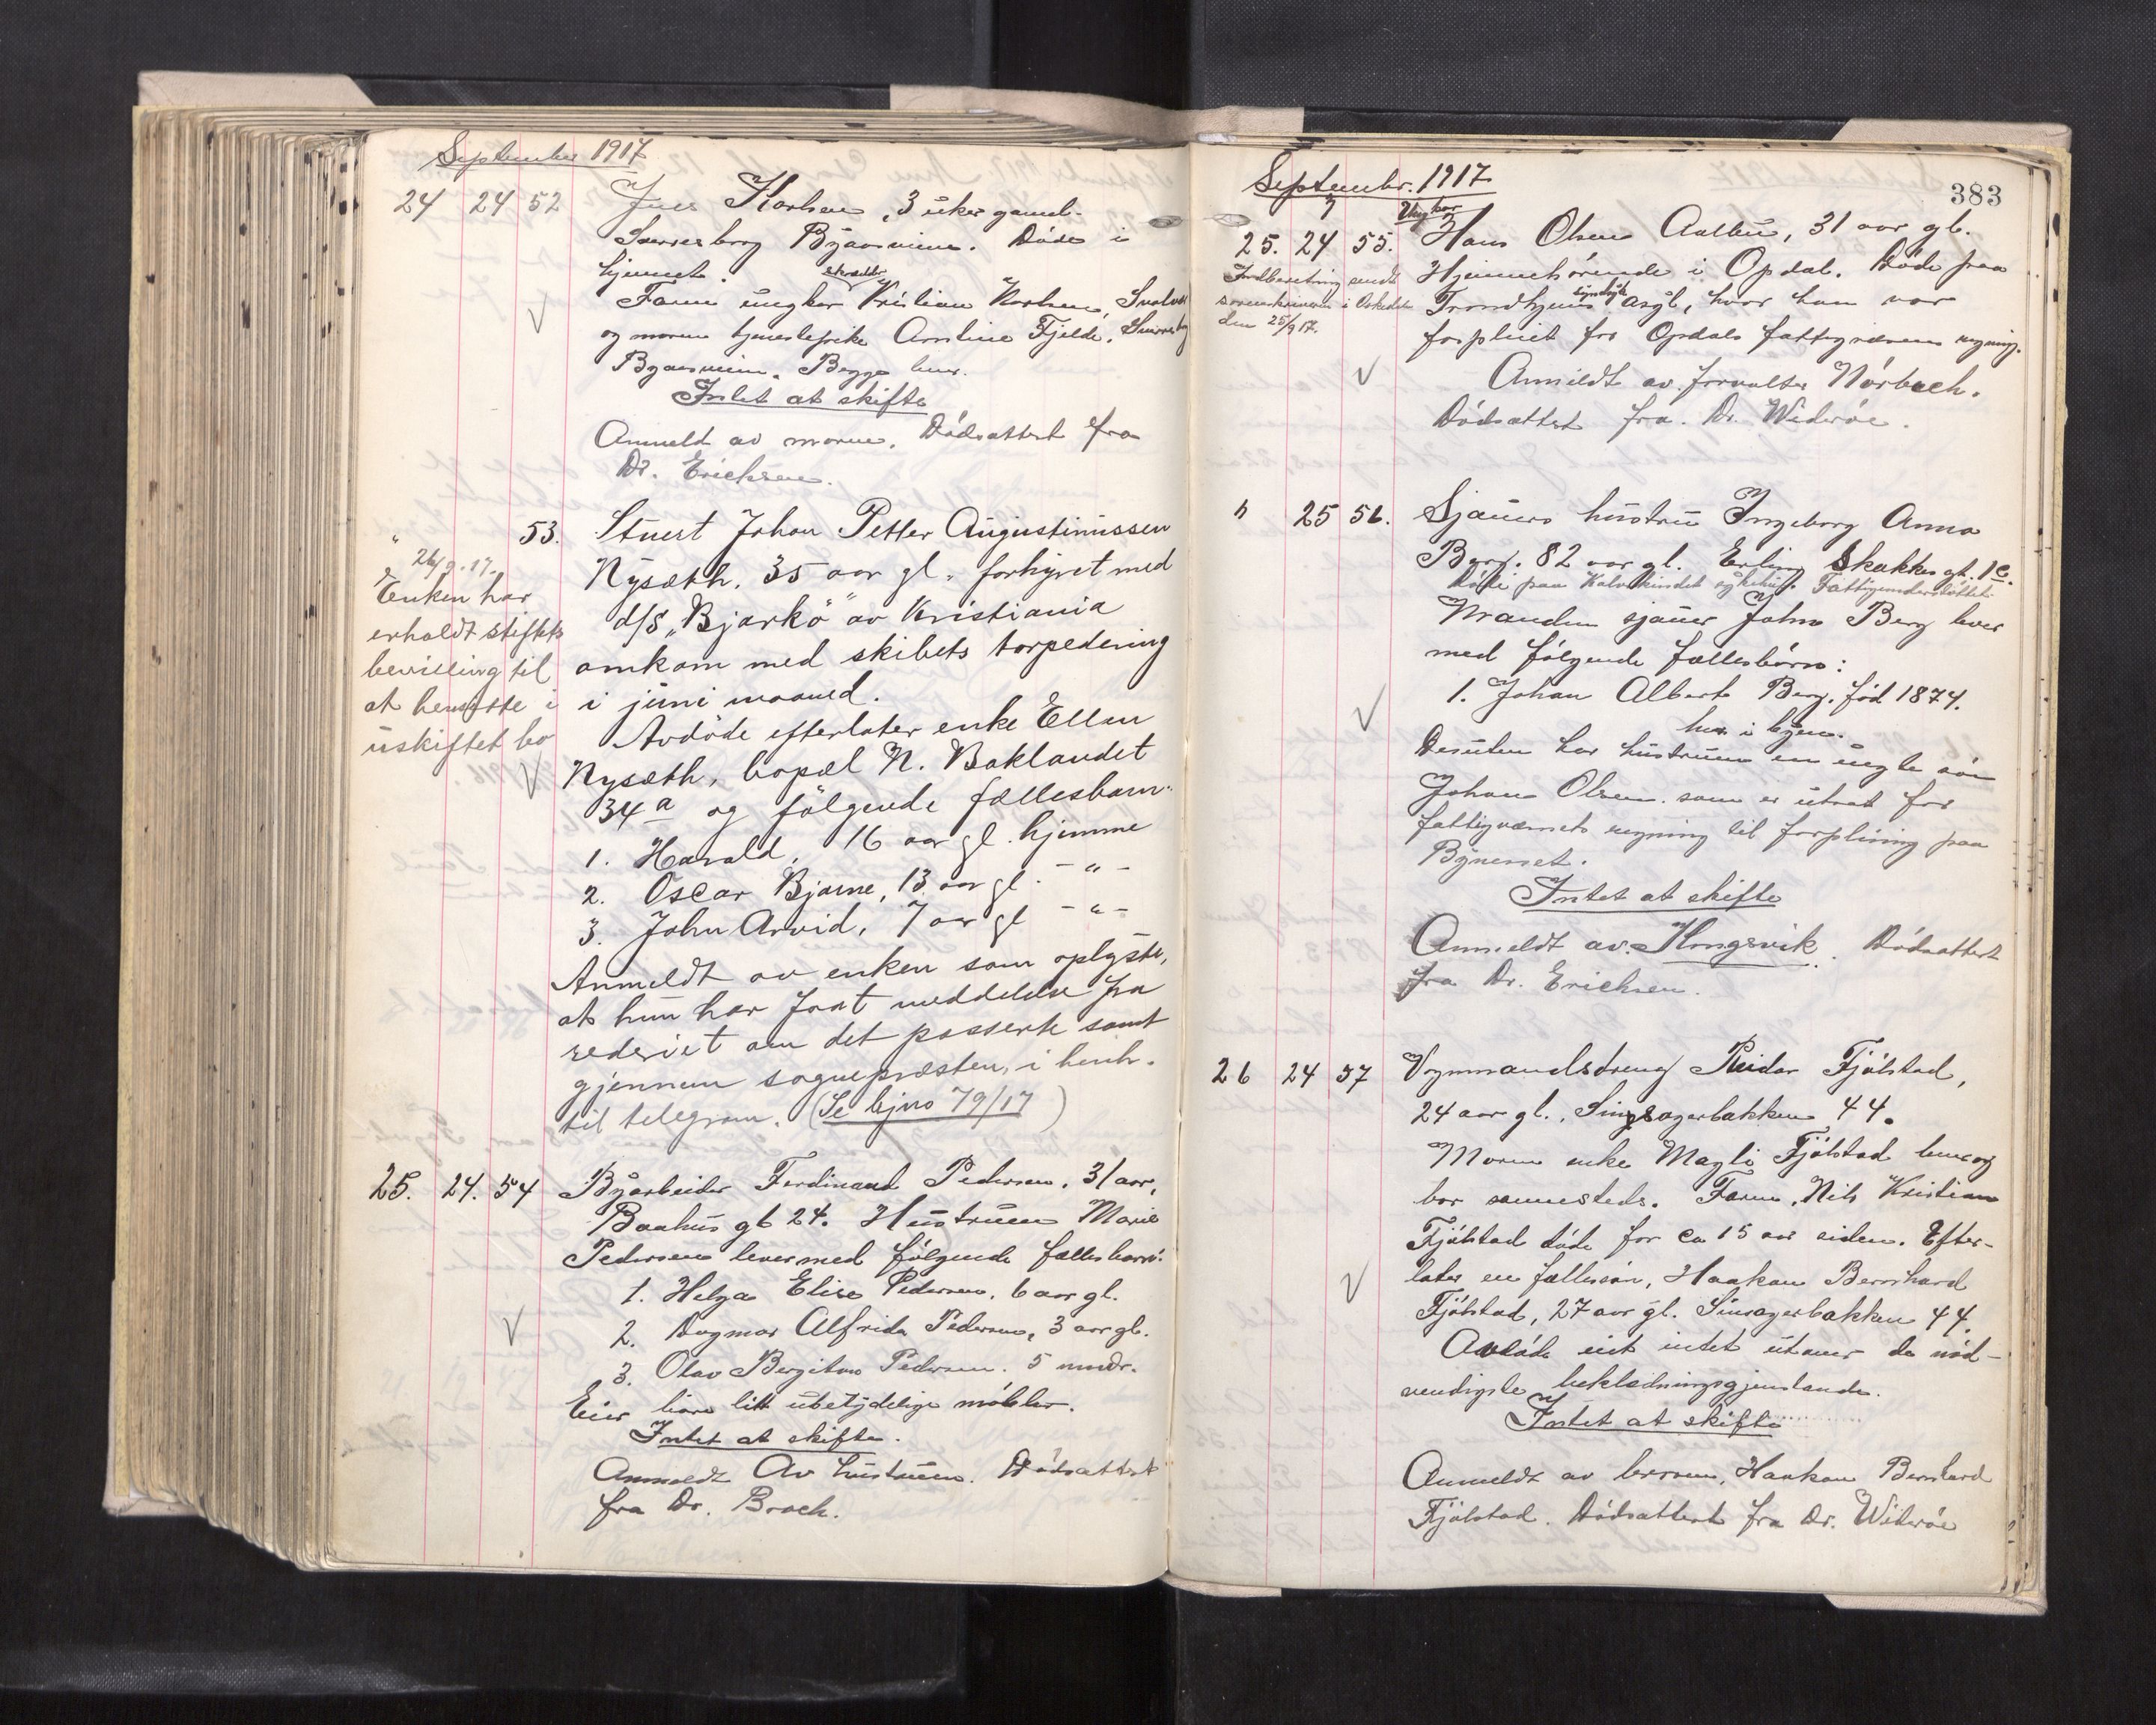 September 1917
24 24 52 Karlsen, 3 uker gammel.
Sverresborg Byaasveien. Døde i
hjemmet.
skrædder
Faren ungkar Kristian Karlsen,
og moren tjenestepike Arntine Fjelde,
Byaasveien. Begge lever.
Intet at skifte
Anmeldt av moren. Dødsattest fra
Dr. Erichsen.
" 53. Stuert Johan Petter Augustinussen
Nysæth, 35 aar gl. forhyret med
d/s "Bjarkö" av Kristiania
omkom med skibets torpedering
i juni maaned.
Avdøde efterlater enke Ellen
Nysæth, bopæl N. Baklandet
34a og følgende fællesbarn.
1. Harald, 16 aar gl. hjemme
2. Oscar Bjarne, 13 aar gl. - " -
3. John Arvid, 7 aar gl - " -
Anmeldt av enken som oplyste,
at hun har faat meddelelse fra
rederiet om det passerte samt
gjennem sognepresten, i henh.
til telegram. (Se bjno 79/17)
26/9.17.
Enken har
erholdt stiftets
bevilling til
at hensitte i
uskiftet bo
25. 24. 54 Byarbeider Ferdinand Pedersen, 31 aar,
Baahus gt 24. Hustruen Marie
Pedersen lever med følgende fællesbarn:
1. Helga Elise Pedersen, 6 aar gl.
2. Dagmar Alfrida Pedersen, 3 aar gl.
3. Olav Bergiton Pedersen. 5 mndr.
Eier bare litt ubetydelige møbler.
Intet at skifte.
Anmeldt av hustruen. Dødsattest
fra Dr. Broch.
Septembr. 1917 383
Ungkar
25. 24 55. Hans Olsen Aalbu, 31 aar gl.
Hjemmehørende i Opdal. Døde paa
Trondhjems sindsyk asyl, hvor han var
forpleiet for Opdals fattigvæsens regning.
Anmeldt av forvalter Nørbech.
Dødsattest fra Dr. Widerøe.
Indberetning sendt
sorenskriveren i Orkedalen
den 25/9 17.
" 25 56. Sjauers hustru Ingeborg Anna
Berg. 82 aar gl. Erling Skakkes gt. 1c.
Døde paa Kalvskindet sykehus. Fattigunderstøttet.
Manden sjauer John Berg lever
med følgende fællesbørn:
1. Johan Albert Berg, fød 1874.
her i byen.
Desuten har hustruen en uegte søn
Johan Olsen som er utsat for
fattigvæsenets regning til forpleining paa
Bynesset.
Intet at skifte
Anmeldt av Hongsvik. Dødsattest
fra Dr. Erichsen.
26 24 57 Vognmandsdreng Reidar Fjølstad,
24 aar gl., Singsagerbakken 44.
Moren enke Magli Fjølstad lever og
bor sammesteds. Faren, Nils Kristian
Fjølstad døde for ca 15 aar siden. Efter-
later en fællessøn, Haakon Bernhard
Fjølstad, 27 aar gl. Sinsagerbakken 44.
Avdøde eiet intet utover de nød-
vendigste beklædningsgjenstande.
Intet at skifte
Anmeldt av broren, Haakon Bernhard
Fjølstad. Dødsattest fra Dr. Widerøe